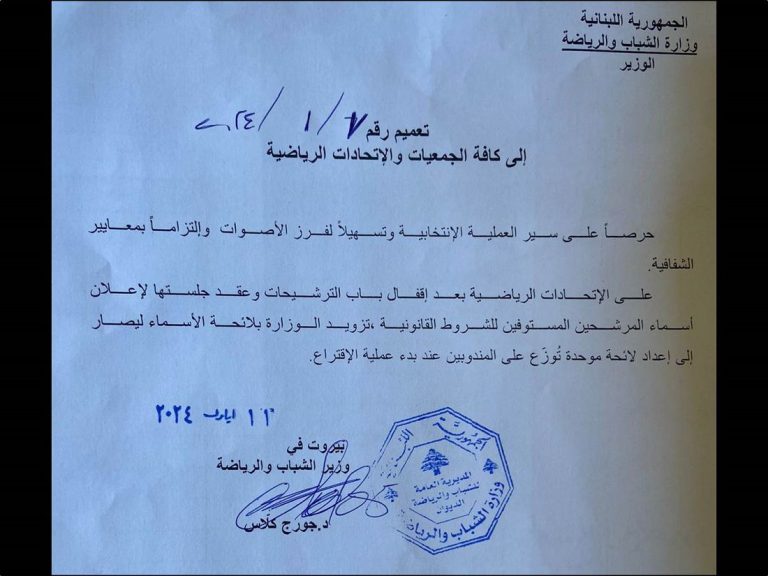 الجمهورية اللبنانية
وزارة الشباب والرياضة
الوزير
تعميم رقم ٧/١/٢٠٢٤
إلى كافة الجمعيات والإتحادات الرياضية
حرصاً على سير العملية الإنتخابية وتسهيلاً لفرز الأصوات وإلتزاماً بمعايير
الشفافية.
على الإتحادات الرياضية بعد إقفال باب الترشيحات وعقد جلستها لإعلان
أسماء المرشحين المستوفين للشروط القانونية ،تزويد الوزارة بلائحة الأسماء ليصار
إلى إعداد لائحة موحدة تُوزّع على المندوبين عند بدء عملية الإقتراع.
١١ ايلول ٢٠٢٤
بيروت في
وزير الشباب والرياضة
د.جورج كلاس
الجمهورية اللبنانية
المديرية العامة
للشباب والرياضة
الديوان
وزارة الشباب والرياضة